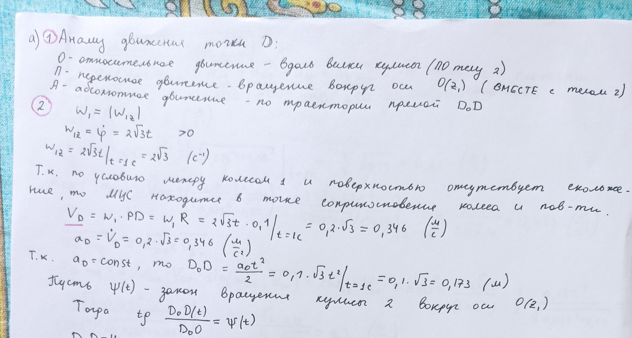 а) ① Анализ движения точки D:
О - относительное движение - вдоль вилки кулисы (ПО телу 2)
П - переносное движение - вращение вокруг оси O(z₁) (ВМЕСТЕ с телом 2)
А - абсолютное движение - по траектории прямой D₀D
② W₁ = |W₁z|
W₁z = φ̇ = 2√3t >0
W₁z = 2√3t|t=1c = 2√3 (c⁻¹)
Т.к. по условию между колесом 1 и поверхностью отсутствует скольже-
ние, то МЦС находится в точке соприкосновения колеса и пов-ти.
V_D = W₁ · PD = W₁R = 2√3t · 0,1|t=1c = 0,2·√3 = 0,346 (м/с)
a_D = V̇_D = 0,2·√3 = 0,346 (м/с²)
Т.к. a_D = const, то D₀D = a_D t²/2 = 0,1·√3 t²|t=1c = 0,1·√3 = 0,173 (м)
Пусть ψ(t) - закон вращения кулисы 2 вокруг оси O(z₁)
Тогда tg D₀D(t)/D₀O = ψ(t)